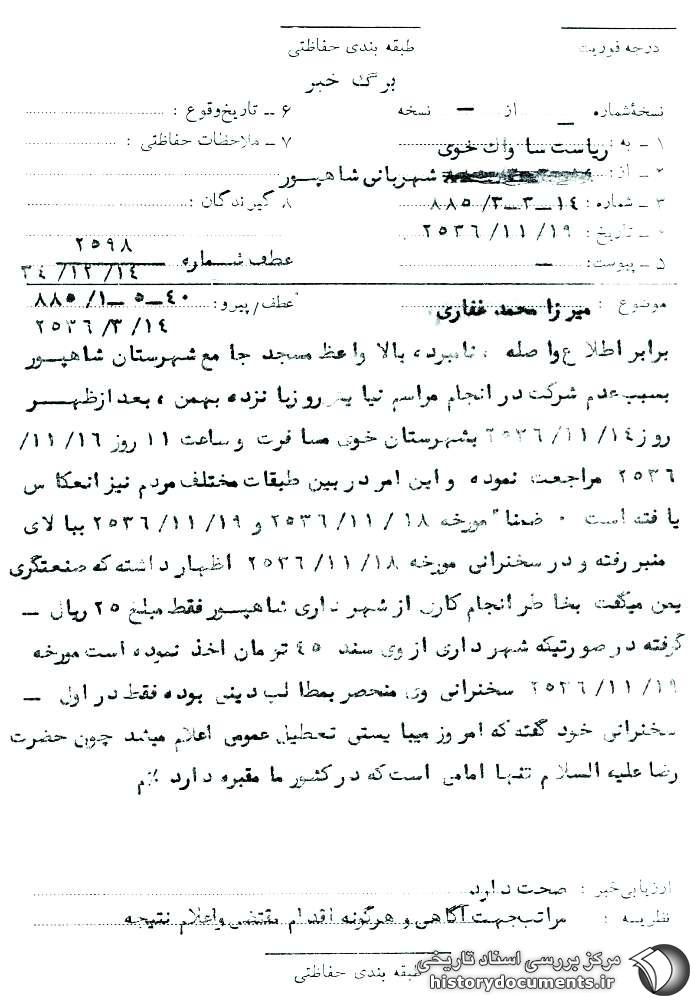 درجه فوریت
طبقه بندی حفاظتی
برگ خبر
نسخهٔ شماره _ از — نسخه
۶ ــ تاریخ وقوع :
۱ ــ به : ریاست ساواك خوی
۷ ــ ملاحظات حفاظتی :
۲ ــ از : شهربانی شاهپور
۳ ــ شماره : ۱٤ــ۳ــ۳/ ۸۸٥
۸ گیرندگان :
تاریخ : ۱۹ /۱۱ /۲٥۳٦
۵ ــ پیوست : —
عطف شماره ۲٥۹۸
۱٤ /۱۲ /۳٤
موضوع : میرزا محمد غفاری
عطف/ پیرو : ٤۰ــ٥ــ۱/ ۸۸٥
۱٤ /۳ /۲٥۳٦
برابر اطلاع واصله ، نامبرده بالا واعظ مسجد جامع شهرستان شاهپور
بسبب عدم شرکت در انجام مراسم نیایش روز پانزده بهمن ، بعد ازظهر
روز ۱٤ /۱۱ /۲٥۳٦ بشهرستان خوی مسافرت و ساعت ۱۱ روز ۱٦ /۱۱/
۲٥۳٦ مراجعت نموده و این امر در بین طبقات مختلف مردم نیز انعکاس
یافته است ۰ ضمنا" مورخه ۱۸ /۱۱ /۲٥۳٦ و ۱۹ /۱۱ /۲٥۳٦ ببالای
منبر رفته و در سخنرانی مورخه ۱۸ /۱۱ /۲٥۳٦ اظهار داشته که صنعتگری
بمن میگفت بخاطر انجام کاری از شهرداری شاهپور فقط مبلغ ۲٥ ریال ــ
گرفته در صورتیکه شهرداری از وی سند ٤٥ تومان اخذ نموده است مورخه
۱۹ /۱۱ /۲٥۳٦ سخنرانی وی منحصر بمطالب دینی بوده فقط در اول ــ
سخنرانی خود گفته که امروز میبایستی تعطیل عمومی اعلام میشد چون حضرت
رضا علیه السلام تنها امامی است که در کشور ما مقبره دارد ٪م
ارزیابی خبر : صحت دارد
نظریه : مراتب جهت آگاهی و هرگونه اقدام مقتضی واعلام نتیجه
طبقه بندی حفاظتی
مرکز بررسی اسناد تاریخی
historydocuments.ir